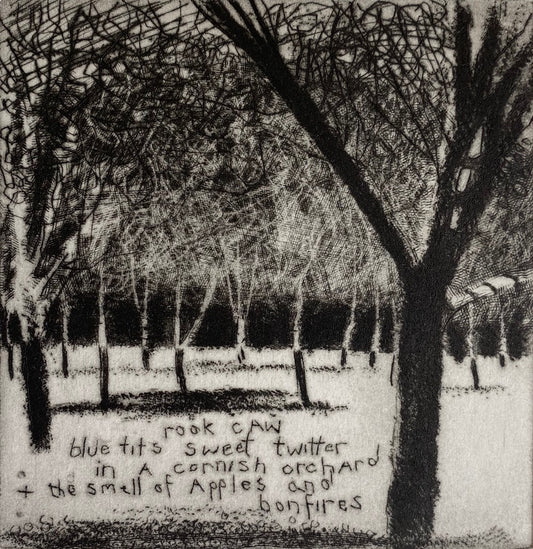 rook caw
blue tits sweet twitter
in A cornish orchard
+ the smell of Apples and
bonfires